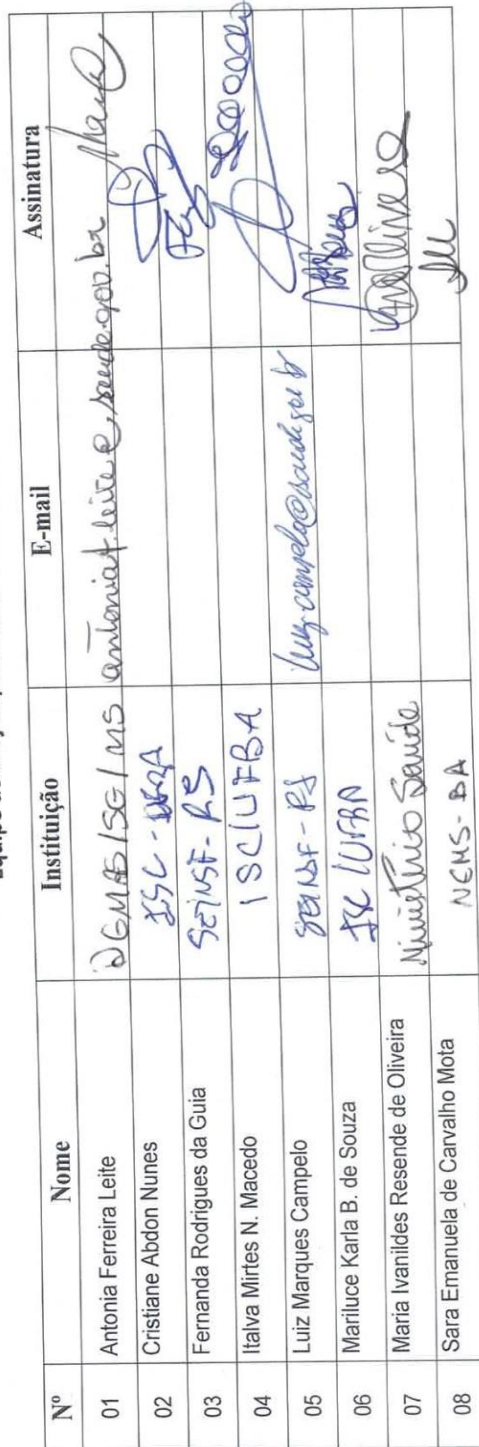 Nº Nome Instituição E-mail Assinatura
01 Antonia Ferreira Leite DEMAS/SE/MS antoniaf.leite@saude.gov.br
02 Cristiane Abdon Nunes ISC -
03 Fernanda Rodrigues da Guia SEINSF-RS
04 Italva Mirtes N. Macedo ISC/UFBA
05 Luiz Marques Campelo SEINSF-RS luiz.campelo@saude.gov.br
06 Mariluce Karla B. de Souza ISC/UFBA
07 Maria Ivanildes Resende de Oliveira Ministério Saúde
08 Sara Emanuela de Carvalho Mota NEMS-BA